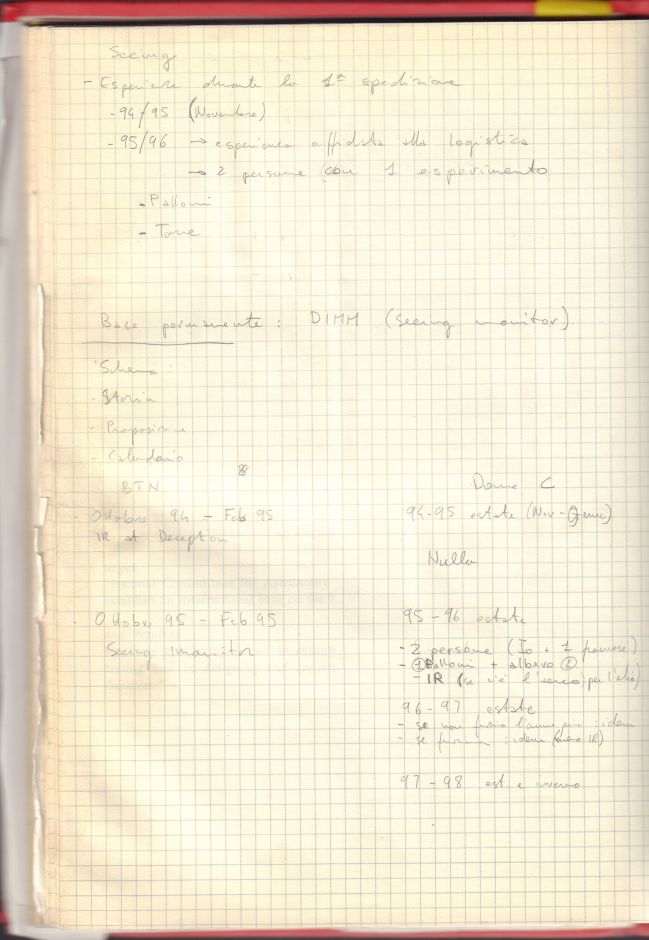 Seeing
- Esperienze durante la 1ª spedizione
- 94/95 (Novembre)
- 95/96 → esperienza affidata alla logistica
→ 2 persone con 1 esperimento
- Palloni
- Torre
Base permanente : DIMM (Seeing monitor)
Schema :
- Storia
- Proposizione
- Calendario
BTN
- Ottobre 94 - Feb 95
IR at Deception
- Ottobre 95 - Feb 95
Seeing monitor
Dome C
94-95 estate (Nov -
Nulla
95-96 estate
- 2 persone (Io + 1 francese)
- ① Palloni + albero ②
- IR (se c'è l'aereo per l'elio)
96-97 estate
- se non funzia l'anno : idem
- se funzia : idem (meno IR)
97-98 est e inverno